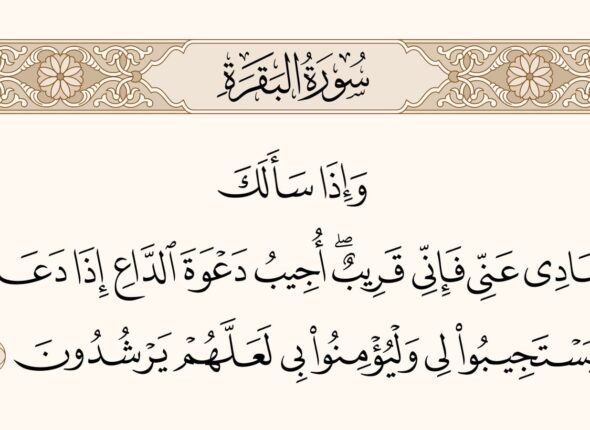 سُورَةُ البَقَرَةِ
وَإِذَا سَأَلَكَ
ـَادِى عَنِّى فَإِنِّى قَرِيبٌۖ أُجِيبُ دَعۡوَةَ ٱلدَّاعِ إِذَا دَعَا
ـسۡتَجِيبُواْ لِى وَلۡيُؤۡمِنُواْ بِى لَعَلَّهُمۡ يَرۡشُدُونَ